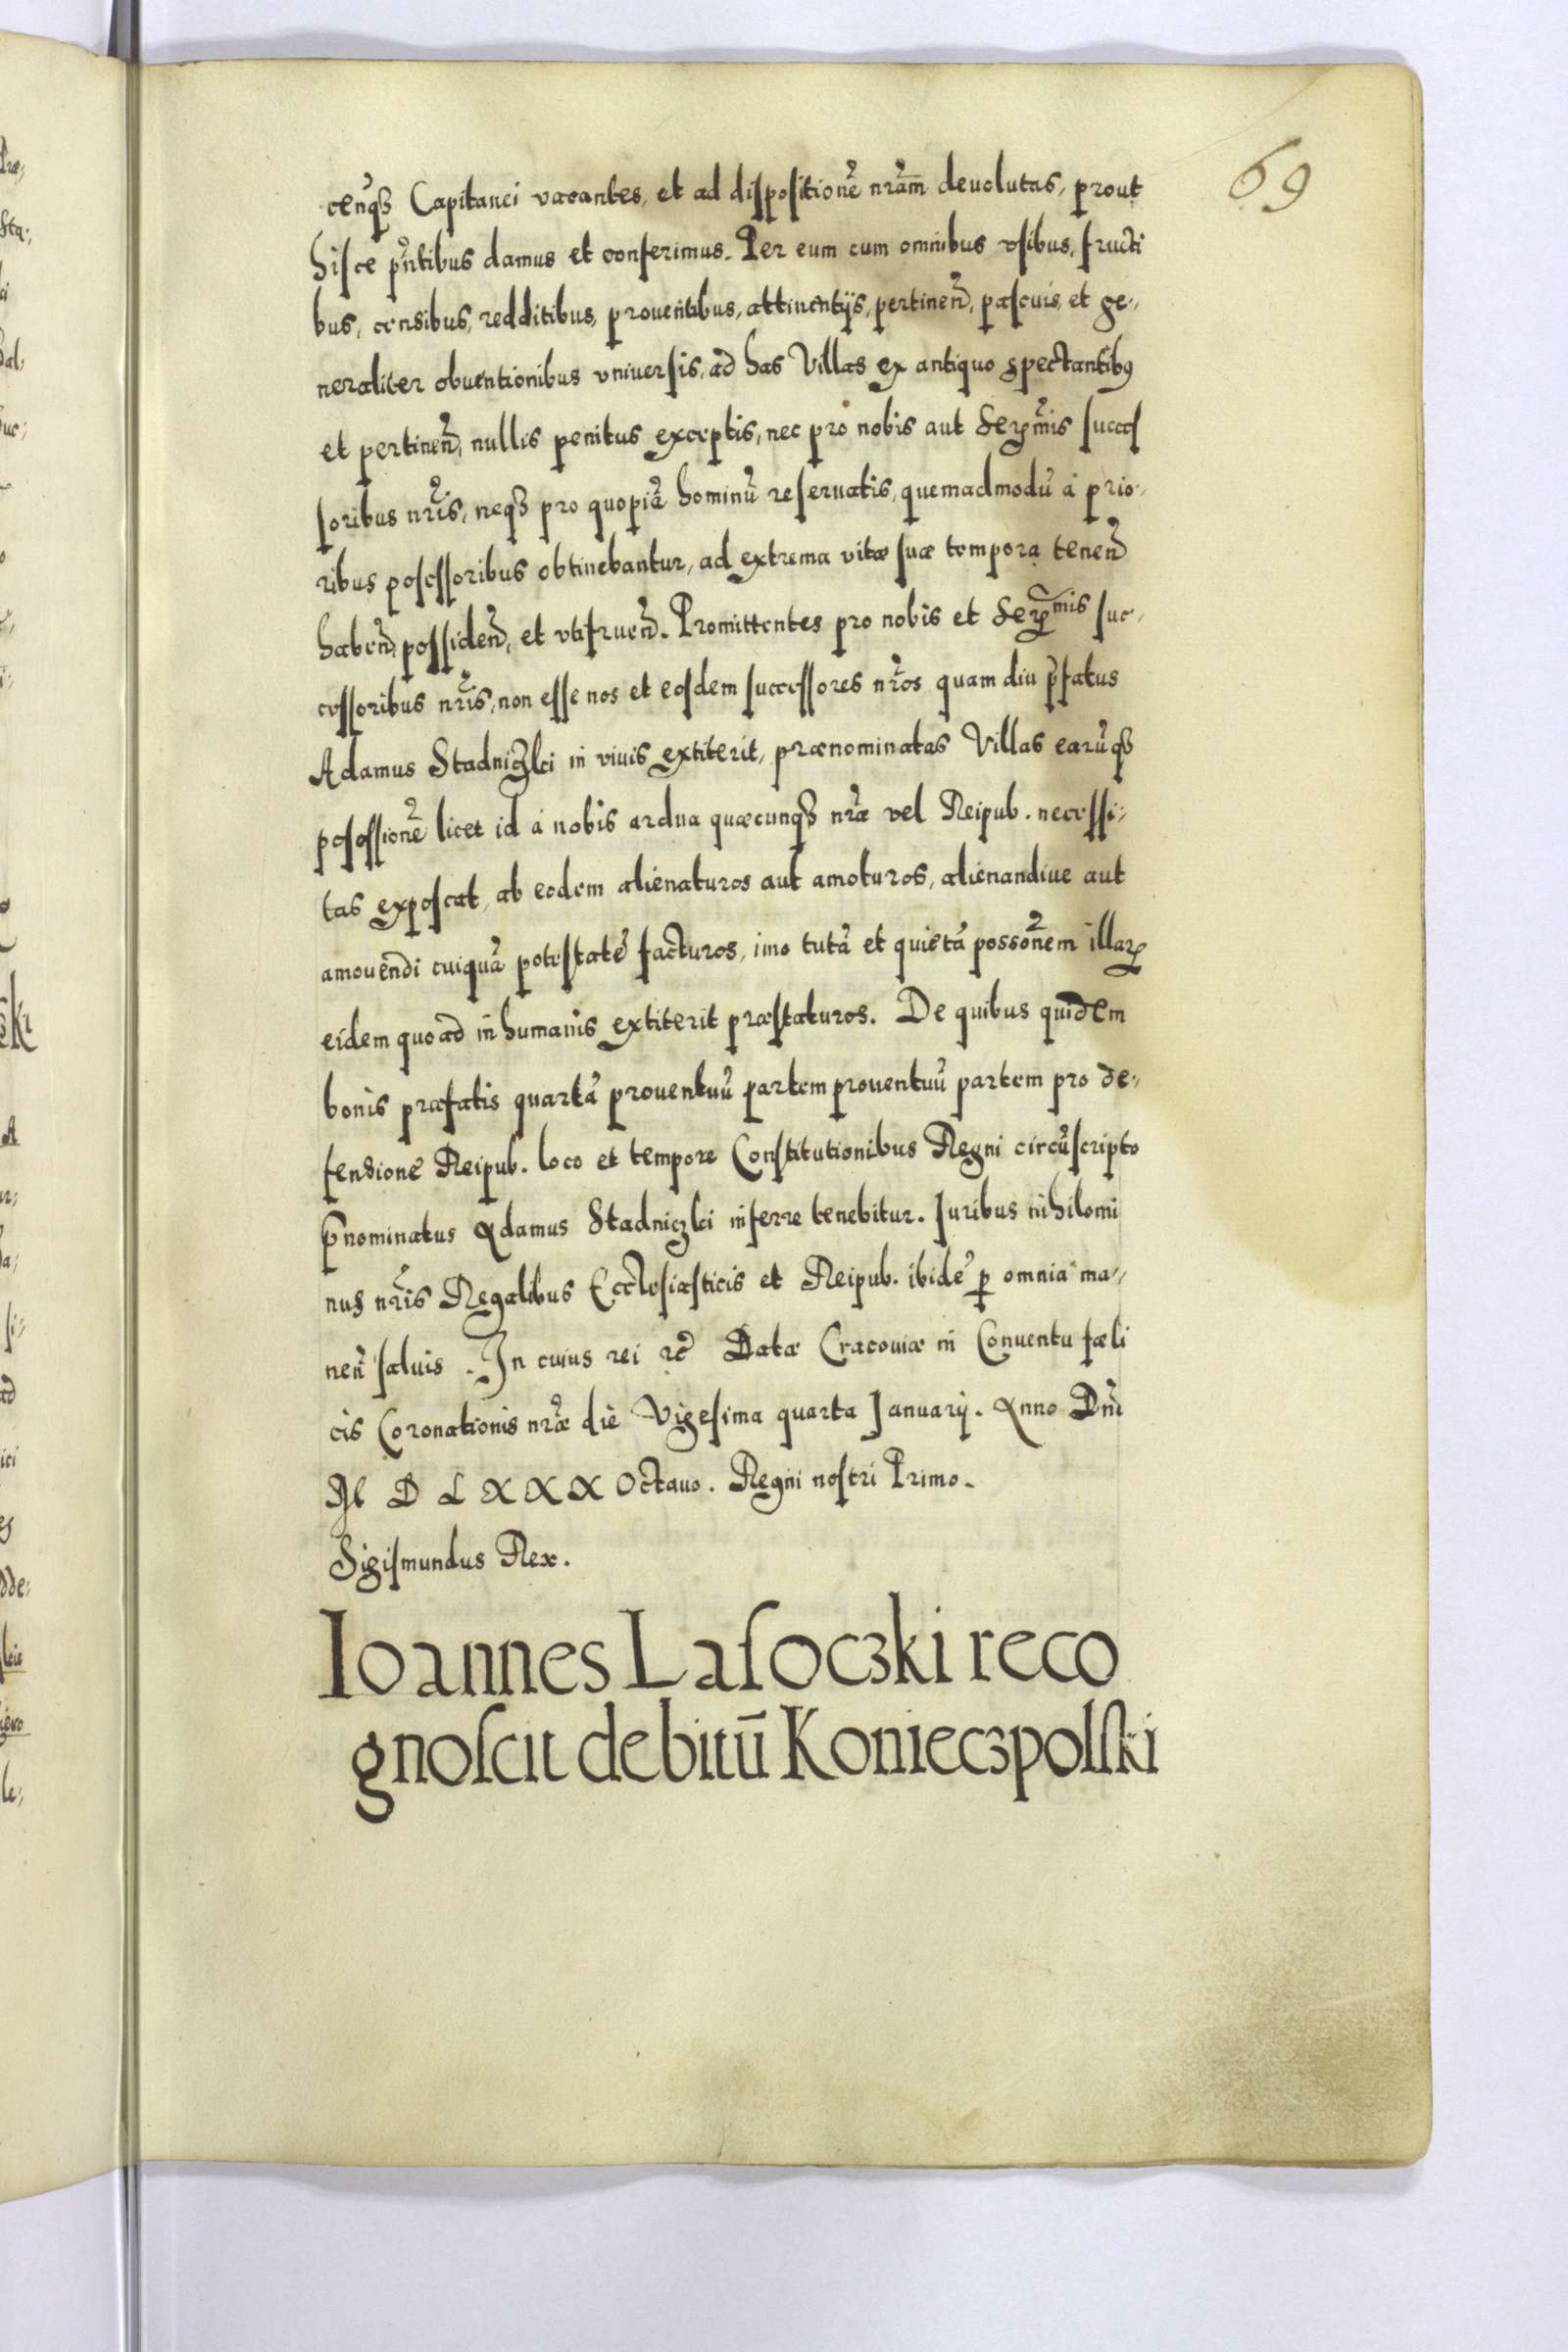 69
cenq̃ꝫ Capitanei vacantes, et ad dispositionẽ nrãm deuolutas, prout
hisce pñtibus damus et conferimus. Per eum cum omnibus vsibus, fructi
bus, censibus, redditibus, prouentibus, attinentijs, pertineñ, pascuis, et ge,,
neraliter obuentionibus vniuersis, ad has Villas ex antiquo spectantibꝰ
et pertineñ, nullis penitus exceptis, nec pro nobis aut Serẽmis succes
soribus nrĩs, neqꝫ pro quopiã hominũ reseruatis, quemadmodũ à prio,
ribus possessoribus obtinebantur, ad extrema vitæ suæ tempora teneñ
habeñ, possideñ, et vtifrueñ. Promittentes pro nobis et Serẽmis suc,
cessoribus nrĩs, non esse nos et eosdem successores nrõs quam diu p̃fatus
Adamus Stadniczki in viuis extiterit, prænominatas Villas earũqꝫ
possessionẽ licet id à nobis ardua quæcunqꝫ nrãe vel Reipub. necessi,
tas exposcat, ab eodem alienaturos aut amoturos, alienandiue aut
amouendi cuiquã potestatẽ facturos, imo tutã et quietã possonẽm illarꝝ
eidem quoad in humanis extiterit præstaturos. De quibus quidem
bonis præfatis quartã prouentuũ partem prouentuũ partem pro de,
fensione Reipub. loco et tempore Constitutionibus Regni circũscripto
p̃nominatus Adamus Stadniczki inferre tenebitur. Iuribus nihilomi
nus nrĩs Regalibus Ecclesiasticis et Reipub. ibidẽ ꝑ omnia ma,,
neñ saluis. In cuius rei ꝛc̃ Datæ Cracouiæ in Conuentu fæli
cis Coronationis nrãe die Vigesima quarta Ianuarij. Anno Dñi
M D L X X X Octauo. Regni nostri Primo.
Sigismundus Rex.
Ioannes Lasoczki reco
gnoscit debitū Konieczpolski